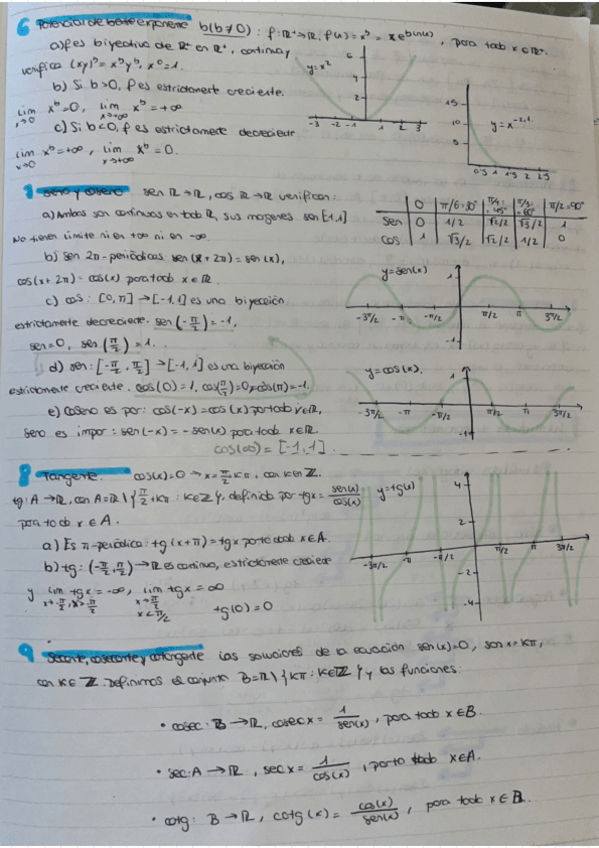 6 Potencial de base y exponente b(b≠0): f: R⁺→R, f(x) = xᵇ = e^(b ln(x)), para todo x∈R⁺.
a) f es biyectiva de R⁺ en R⁺, continua y
verifica (xy)ᵇ = xᵇyᵇ, x⁰=1.
b) Si b>0, f es estrictamente creciente.
lim x→0 xᵇ=0, lim x→+∞ xᵇ = +∞
c) Si b<0, f es estrictamente decreciente
lim x→0 xᵇ=+∞, lim x→+∞ xᵇ = 0.
y=x²
6
4
2
-3 -2 -1 1 2 3
15
10
5
y=x^(-2,1)
0'5 1 1'5 2 2'5
7 Seno y coseno sen R→R, cos R→R verifican:
a) Ambas son continuas en todo R, sus imagenes son [-1,1]
No tienen limite ni en +∞ ni en -∞.
b) sen 2π-periódicas sen(x+2π) = sen(x),
cos(x+2π) = cos(x) para todo x∈R.
c) cos: [0,π]→[-1,1] es una biyección
estrictamente decreciente. sen(-π/2) = -1,
sen=0, sen(π/2) = 1.
d) sen: [-π/2, π/2]→[-1,1] es una biyección
estrictamente creciente. cos(0)=1, cos(π/2)=0, cos(π)=-1.
e) Coseno es par: cos(-x)=cos(x) para todo x∈R,
seno es impar: sen(-x) = -sen(x) para todo x∈R.
cos(∞) = [-1,1].
0 π/6=30° π/4=45° π/3=60° π/2=90°
sen 0 1/2 √2/2 √3/2 1
cos 1 √3/2 √2/2 1/2 0
y=sen(x)
1
-3π/2 -π -π/2 π/2 π 3π/2
-1
y=cos(x).
1
-3π/2 -π -π/2 π/2 π 3π/2
-1
8 Tangente. cos(x)=0 → x=π/2 kπ, con k∈Z.
tg: A→R, con A=R\{π/2+kπ: k∈Z}, definida por tgx = sen(x)/cos(x)
para todo x∈A.
a) Es π-periódica: tg(x+π) = tgx para todo x∈A.
b) tg: (-π/2, π/2)→R es continua, estrictamente creciente
y lim x→-π/2, x>-π/2 tgx = -∞, lim x→π/2 x<π/2 tgx = ∞
tg(0) = 0
y=tg(x)
4
2
-3π/2 -π -π/2 π/2 π 3π/2
-2
-4
9 Secante, cosecante y cotangente Las soluciones de la ecuación sen(x)=0, son x=kπ,
con k∈Z. Definimos el conjunto B=R\{kπ: k∈Z} y las funciones:
• cosec: B→R, cosec x = 1/sen(x), para todo x∈B.
• sec: A→R, sec x = 1/cos(x), para todo x∈A.
• cotg: B→R, cotg(x) = cos(x)/sen(x), para todo x∈B.